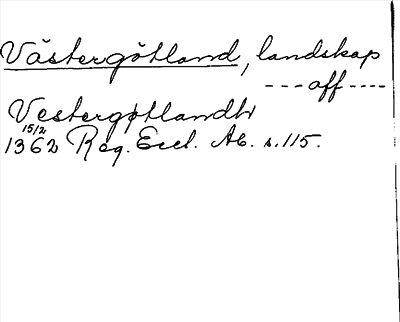 Västergötland, landskap
---aff----
Vestergøtlandh
15/2
1362 Reg. Eccl. Ab. s. 115.